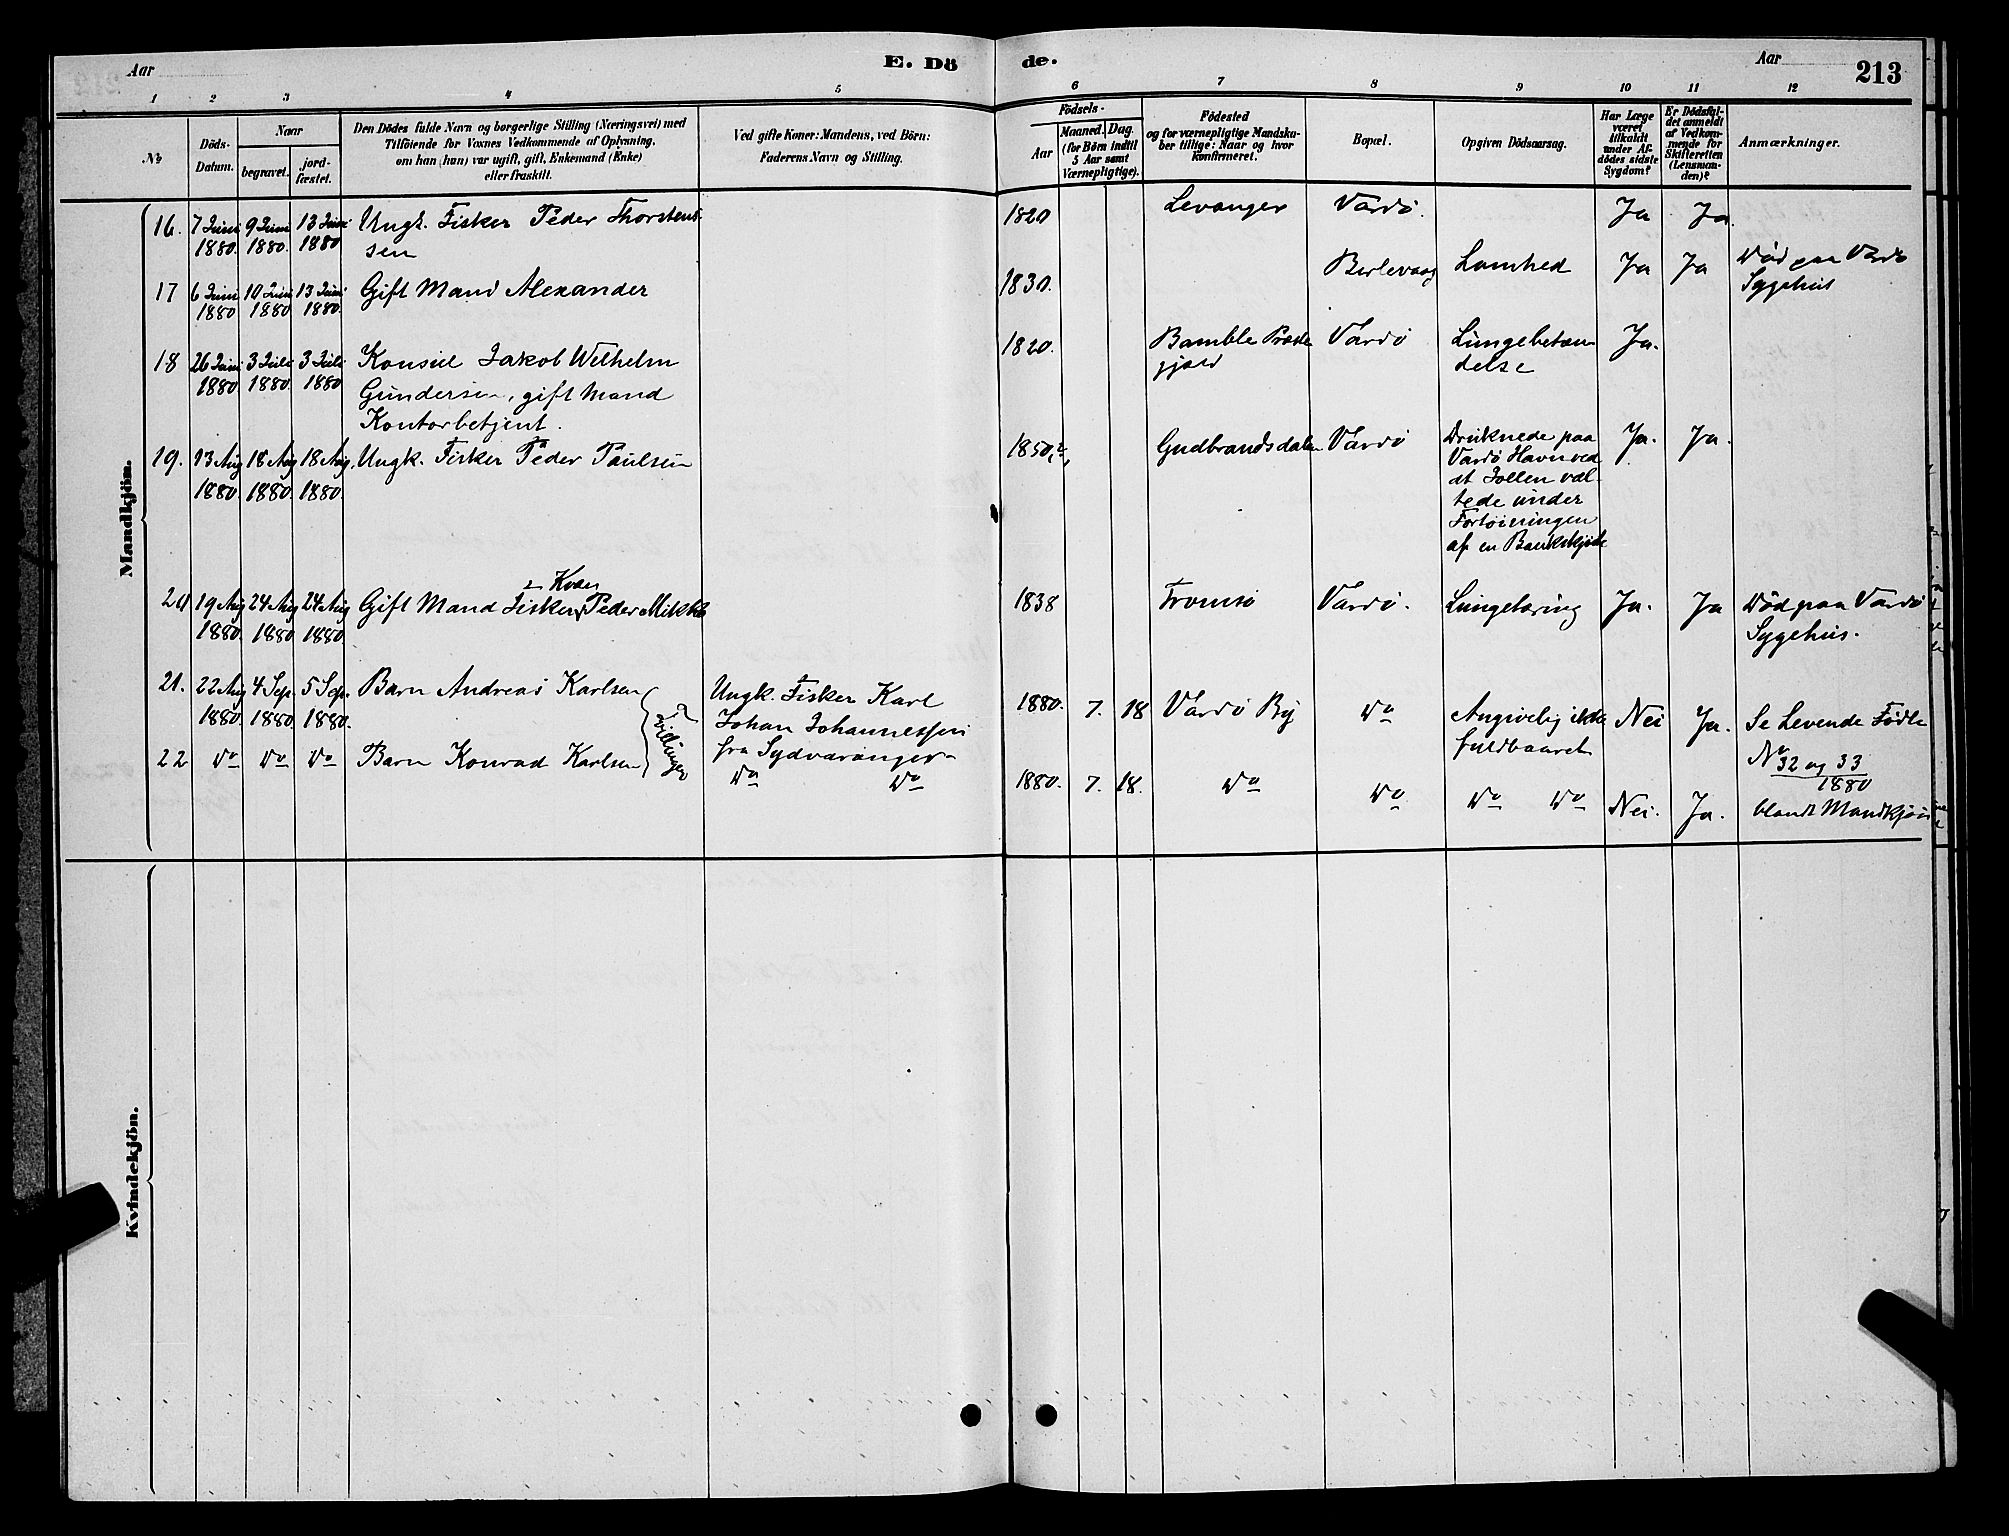 Aar
E. Dö
de.
Aar
213
1 2 3 4 5 6 7 8 9 10 11 12
No
Döds-
Datum.
Naar
begravet.
jord-
fæstet.
Den Dödes fulde Navn og borgerlige Stilling (Næringsvei) med
Tilföiende for Voxnes Vedkommende af Oplysning,
om han (hun) var ugift, gift, Enkemand (Enke)
eller fraskilt.
Ved gifte Koner: Mandens, ved Börn:
Faderens Navn og Stilling.
Födsels-
Aar
Maaned. Dag.
(for Börn indtil
5 Aar samt
Værnepligtige).
Födested
og for værnepligtige Mandska-
ber tillige: Naar og hvor
konfirmeret.
Bopæl.
Opgiven Dödsaarsag.
Har Læge
været
tilkaldt
under Af-
dödes sidste
Sygdom?
Er Dödsfal-
det anmeldt
af Vedkom-
mende for
Skifteretten
(Lensman-
den)?
Anmærkninger.
Mandkjön.
16. 7 Juni 9 Juni 13 Juni Ungk. Fisker Peder Thorstens- 1820 Levanger Vardö. Ja Ja.
1880. 1880. 1880 sen
17 6 Juni 10 Juni 13 Juni Gift Mand Alexander 1830. Berlevaag Lamhed Ja Ja Död paa Vardö
1880 1880 1880. Sygehus
18 26 Juni 3 Juli 3 Juli Konsul Jakob Wilhelm 1820. Bamble Præste Vardö Lungebetæn Ja.
1880 1880. 1880 Gundersen, gift Mand gjæld delse
Kontorbetjent.
19. 13 Aug 18 Aug 18 Aug. Ungk. Fisker Peder Paulsen 1850 Gudbrandsdalen Vardö Druknede paa Ja. Ja.
1880. 1880. 1880. Vardö Havn ved
at Jollen væl-
tede under
Fortöiningen
af en
Kvæn
20 19 Aug 24 Aug 24 Aug Gift Mand Fisker Peder Mikkel 1838 Tromsö Vardö. Lungetæring Ja. Ja Död paa Vardö
1880. 1880 1880. Sygehus.
21. 22 Aug 4 Sep. 5 Sep. Barn Andreas Karlsen Ungk. Fisker Karl 1880. 7. 18 Vardö By Do Angivelig ikke Nei Ja. Se Levende Födte
1880. 1880. 1880. Tvillinger Johan Johannessen fuldbaaret No 32 og 33
22 Do Do Do Barn Konrad Karlsen fra Sydvaranger 1880
Do Do 1880. 7. 18. Do Do Do Do Nei. Ja. blandt Mandkjön
Kvindekjön.